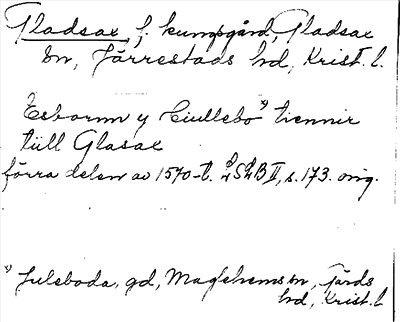 Gladsax, f. kungsgård, Gladsax
sn, Järrestads hd, Krist. l.
Esborn y Ciullebo x) tiennir
till Glasax
förra delen av 1570-t. LSLB II, s. 173. orig.
x) Juleboda, gd, Maglehems sn, Gärds
hd, Krist. l.